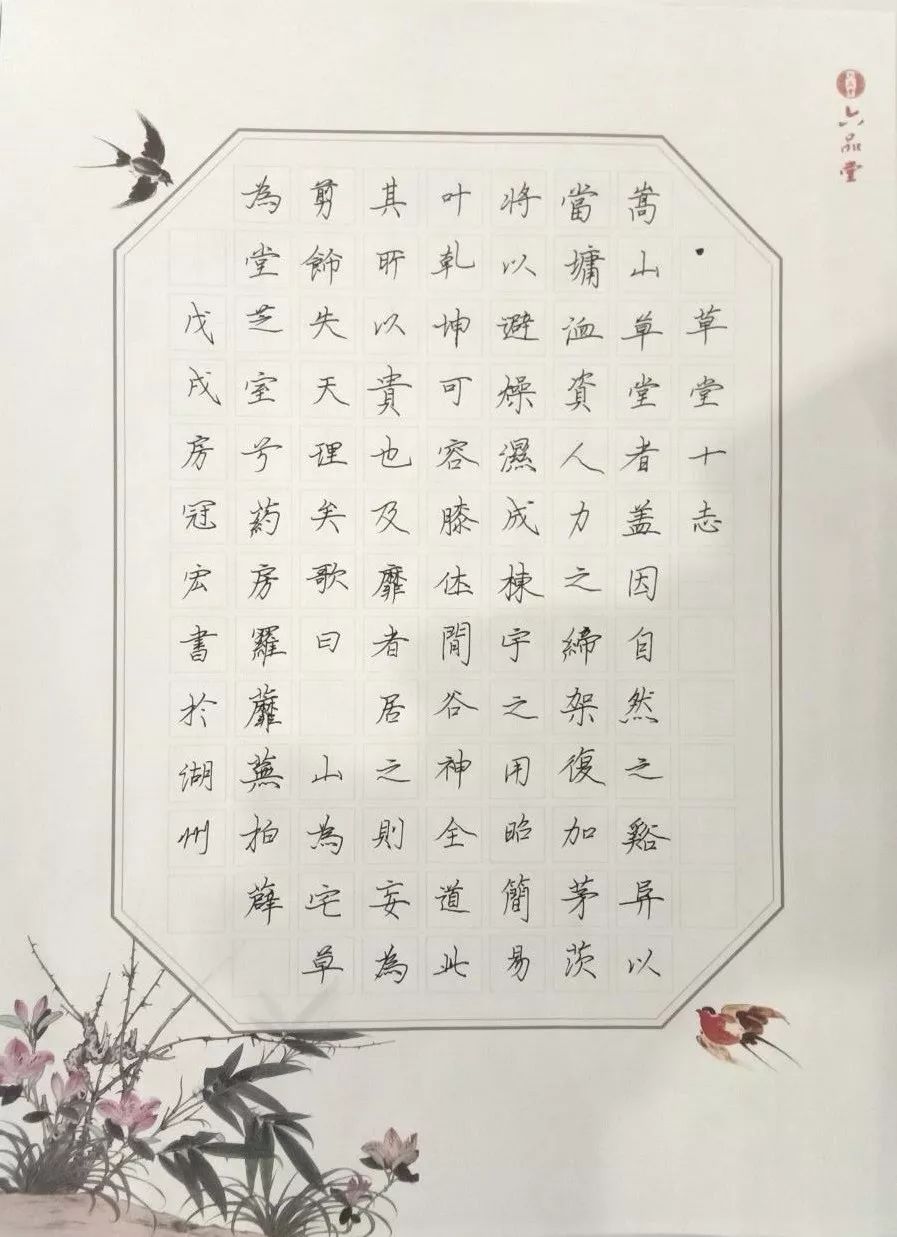 六品堂
·草堂十志
嵩山草堂者盖因自然之谿异以
當墉洫資人力之締架復加茅茨
将以避燥濕成棟宇之用昭簡易
叶乾坤可容膝休閒谷神全道此
其所以貴也及靡者居之則妄為
剪飾失天理矣歌曰 山為宅草
為堂芝室兮葯房羅蘼蕪拍薜
戊戌房冠宏書於湖州